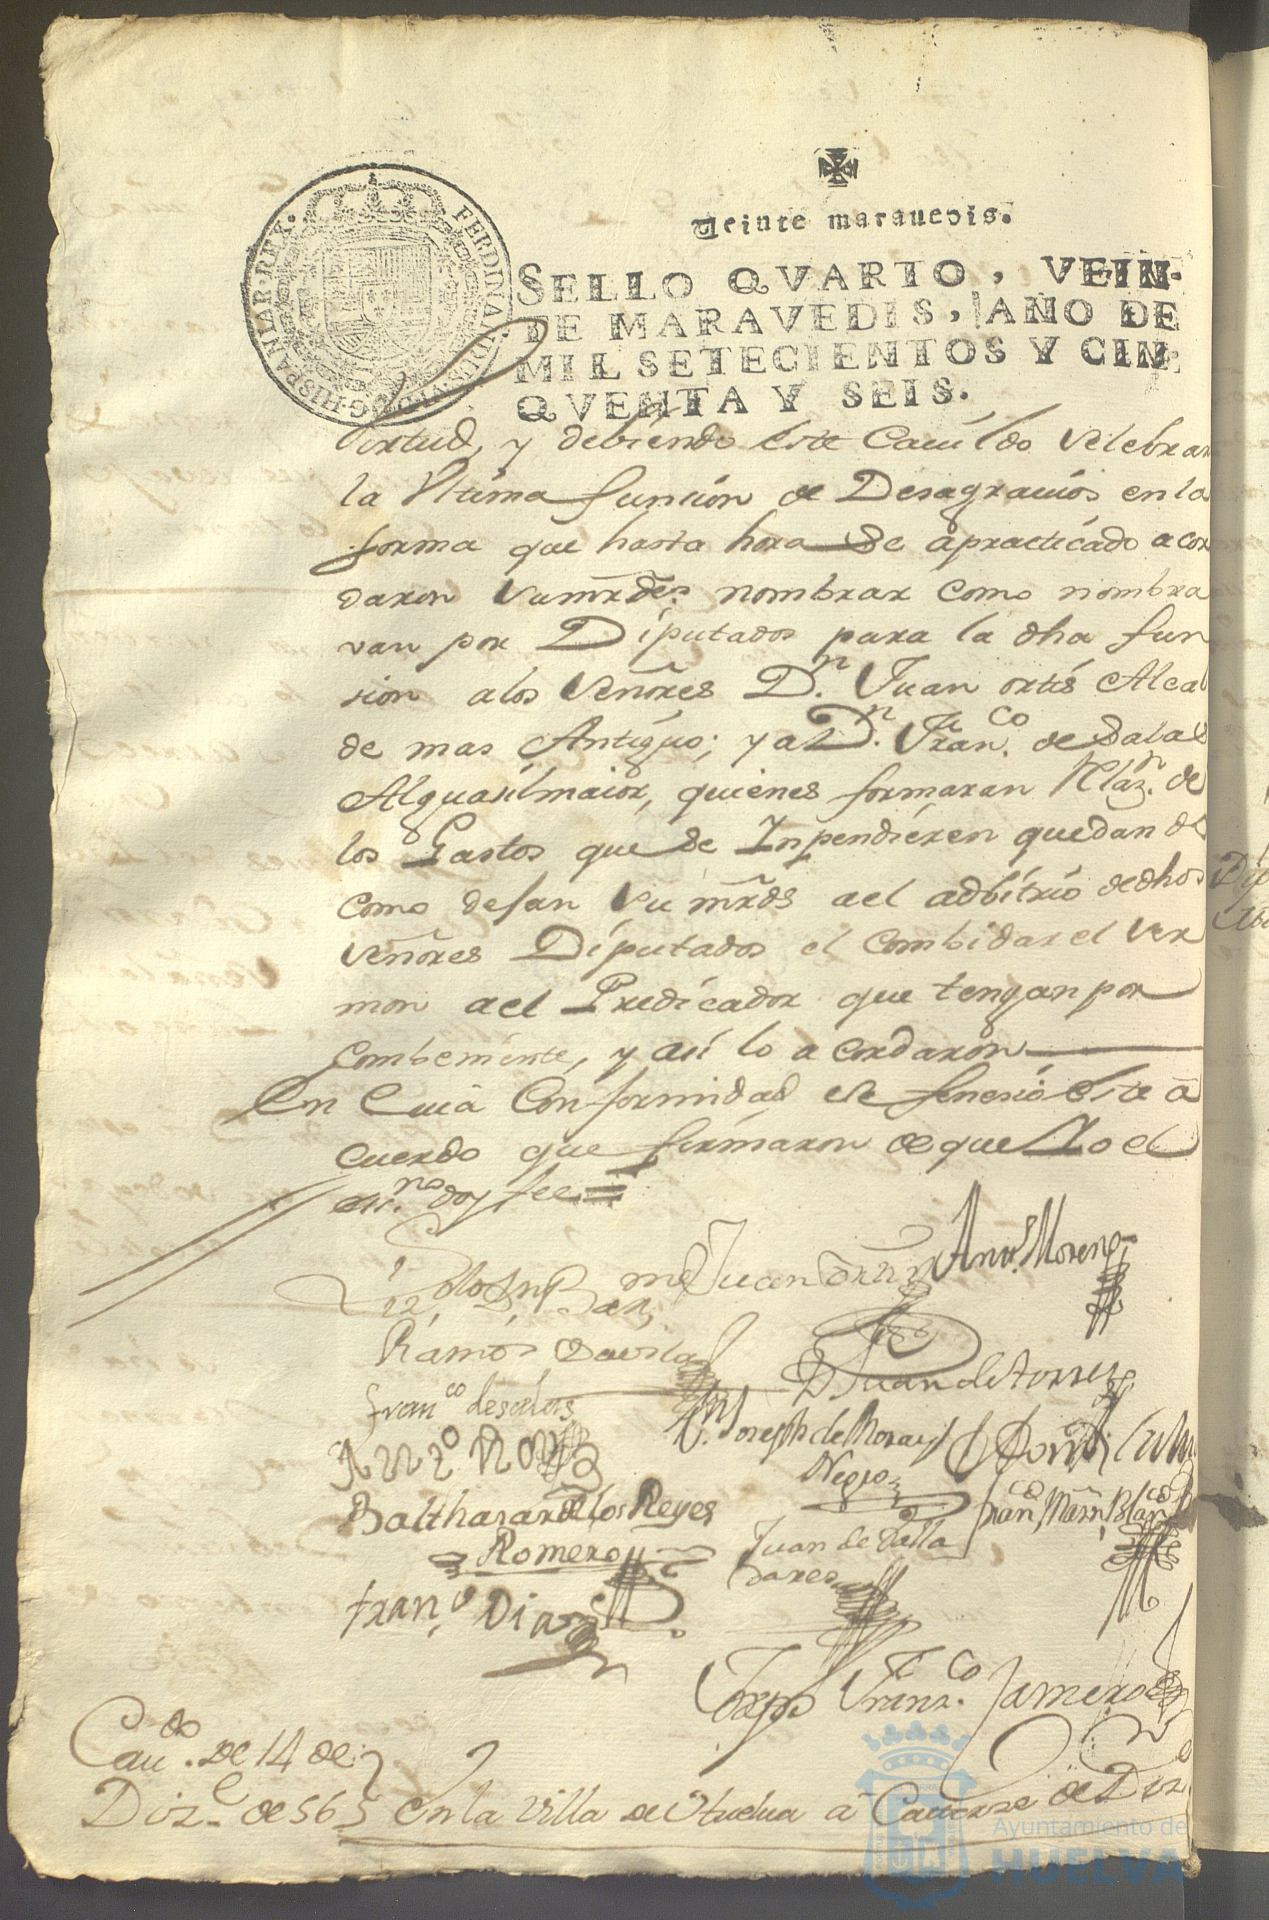 FERDINANDUS·VI·D·G·HISPANIAR·REX·
Veinte marauedis.
SELLO QVARTO, VEIN-
TE MARAVEDIS, AÑO DE
MIL SETECIENTOS Y CIN-
QVENTA Y SEIS.
Virtud, y debiendo este Cauildo Velebrar
la Vltima funcion de Desagrauios en la
forma que hasta hora se a practicado acor
daron Sumrdes. nombrar como nombra
van por Diputados para la dha fun
sion a los Señores Dn. Juan ortis Alcal
de mas Antiguo; y a Dn. Franco. de Salas
Alguasilmaior, quienes formaran Rlazn. de
los Gastos que se Inpendieren quedando
como desan Su mrds a el adbitrio de dhos
señores Diputados el combidar el ser
mon a el Predicador que tengan por
combeniente, y asi lo acordaron
En Cuia Conformidad se fenesio este a
cuerdo que firmaron de que Yo el
essno. doy fee =
Juan Ortiz
Anto. Moreno
Ramos Davila
D Juan de Torres
Franco de salas
Dn. Joseph de Mora y
Negro
Balthasar de los Reyes
Romero
Franco Marn. Blanco
Juan de Valla
dares
Frano. Diaz
Joseph Franco. Jamero
Caudo. de 14 de
Dize. de 56
En la Villa de Huelua a Catorze de Dize
Ayuntamiento de
HUELVA